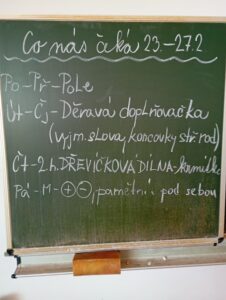 Co nás čáká 23.-27.2
Po-Př-Pole
Út-Čj-Děravá doplňovačka
(vyjm. slova, koncovky stř. rod)
Čt-2h. DŘEVÍČKOVÁ DÍLNA-krmítko
Pá-M-+-, pamětní i pod sebou